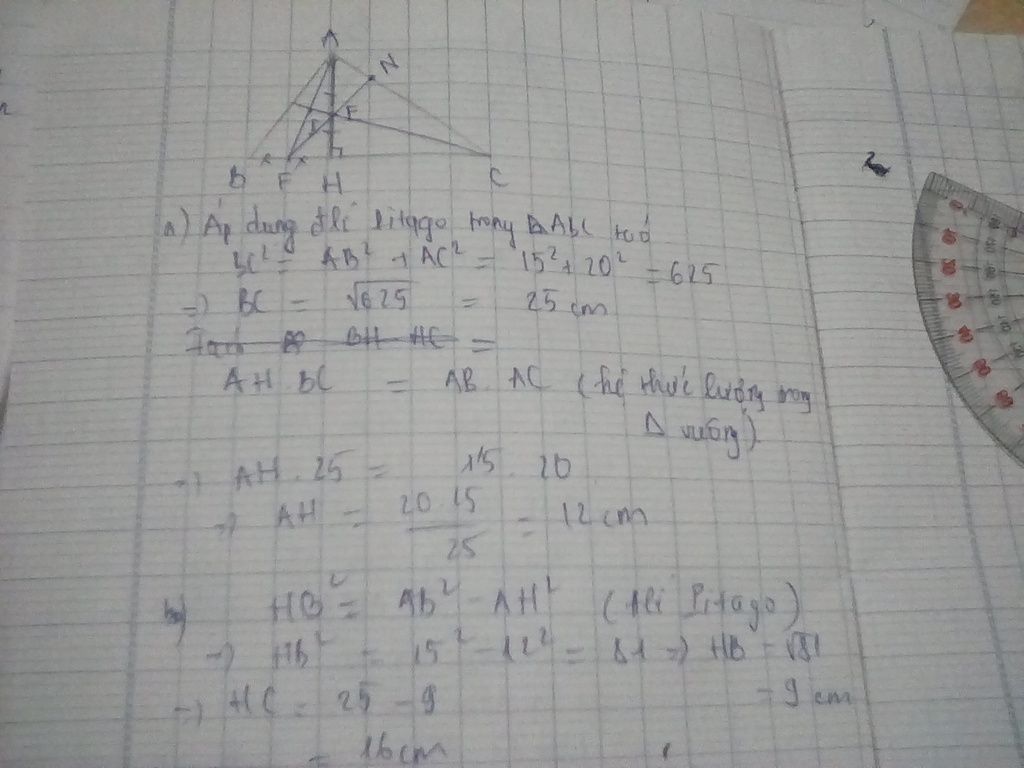 A
N
E
B F H C
a) Áp dụng đlí Pitago trong ΔABC có
BC² = AB² + AC² = 15² + 20² = 625
=> BC = √625 = 25 cm
BH HC =
AH . BC = AB . AC (hệ thức lượng trong
Δ vuông)
=> AH . 25 = 15 . 20
=> AH = 20 . 15 / 25 = 12 cm
HB² = AB² - AH² (đlí Pitago)
=> HB² = 15² - 12² = 81 => HB = √81
= 9 cm
=> HC = 25 - 9
= 16 cm